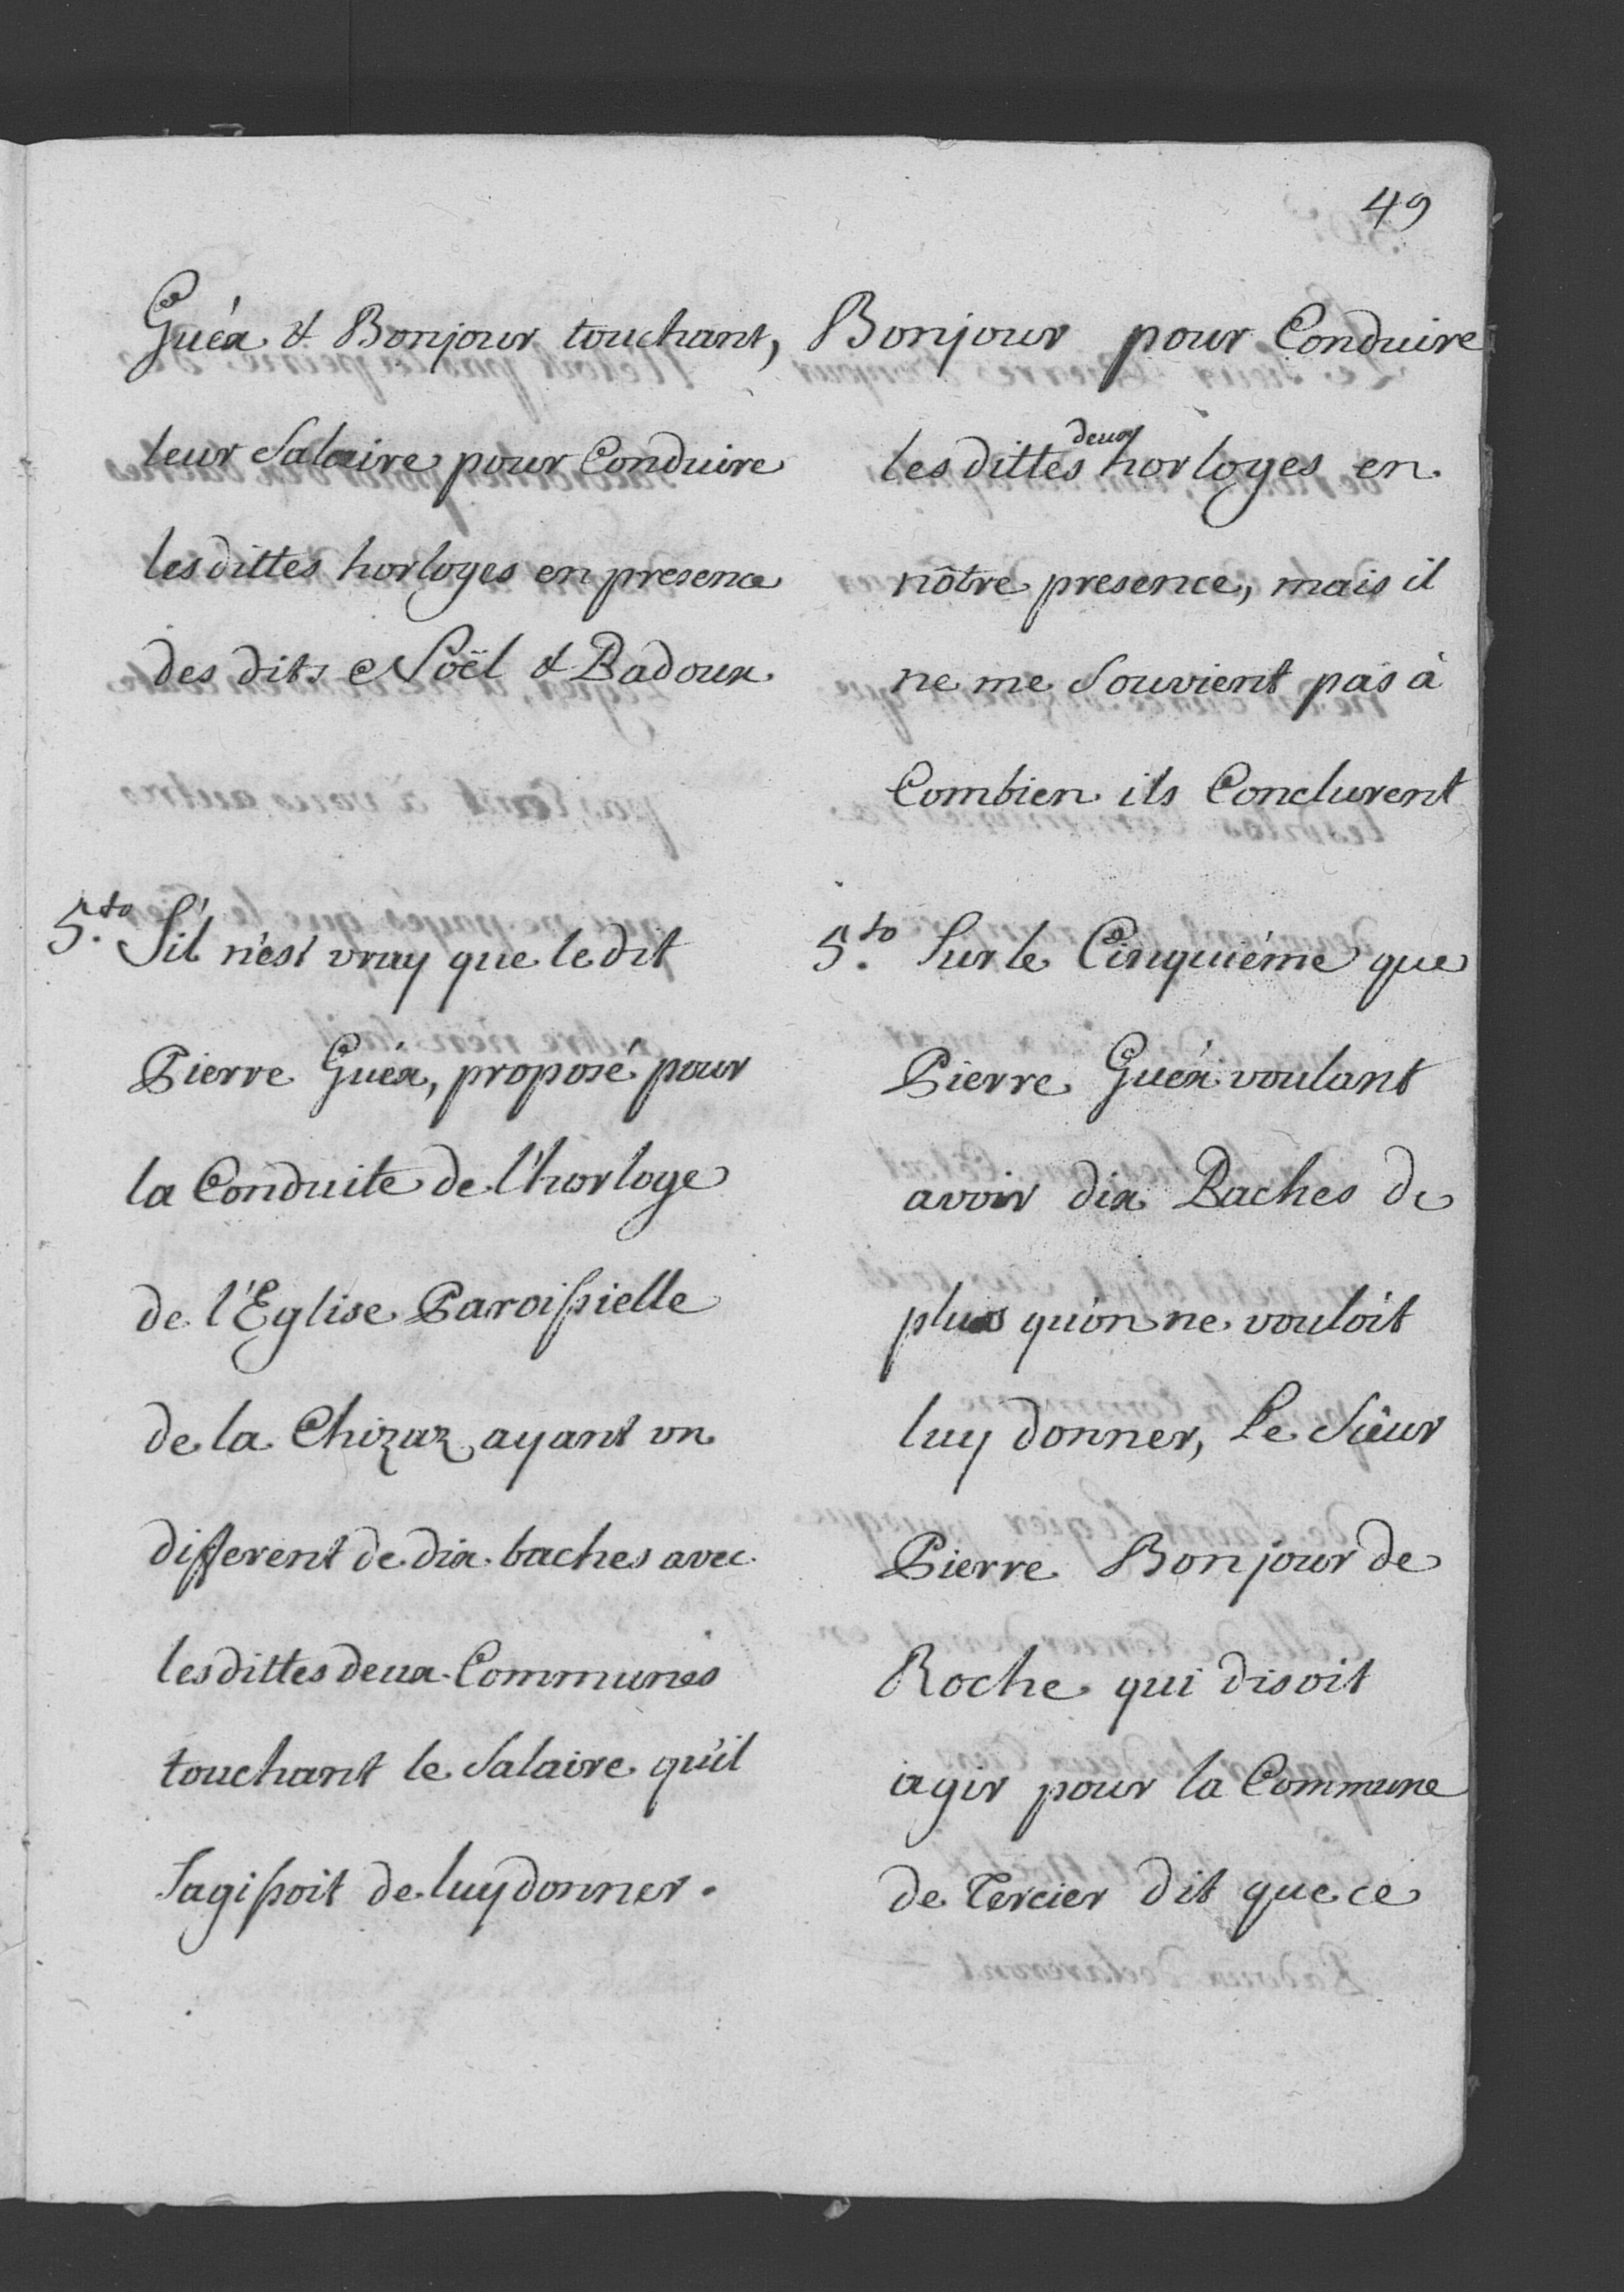 49
Guéx & Bonjour touchant,
leur Salaire pour Conduire
lesdittes horloges en presence
des dits Noël & Badoux
5.to S'il n'est vray que le dit
Pierre Guéx, proposé pour
la Conduite de l'horloge
de l'Eglise Paroissielle
de la Chizaz ayant un
different de dix baches avec
lesdittes deux Communes
touchant le Salaire qu'il
Sagissoit de luy donner.
Bonjour pour Conduire
les dittes deux horloges en
nôtre presence, mais il
ne me Souvient pas à
Combien ils Conclurent
5.to Sur le Cinquiéme que
Pierre Guéx voulant
avoir dix Baches de
plus qu'on ne vouloit
luy donner, Le Sieur
Pierre Bonjour de
Roche qui disoit
agir pour la Commune
de Tercier dit que ce